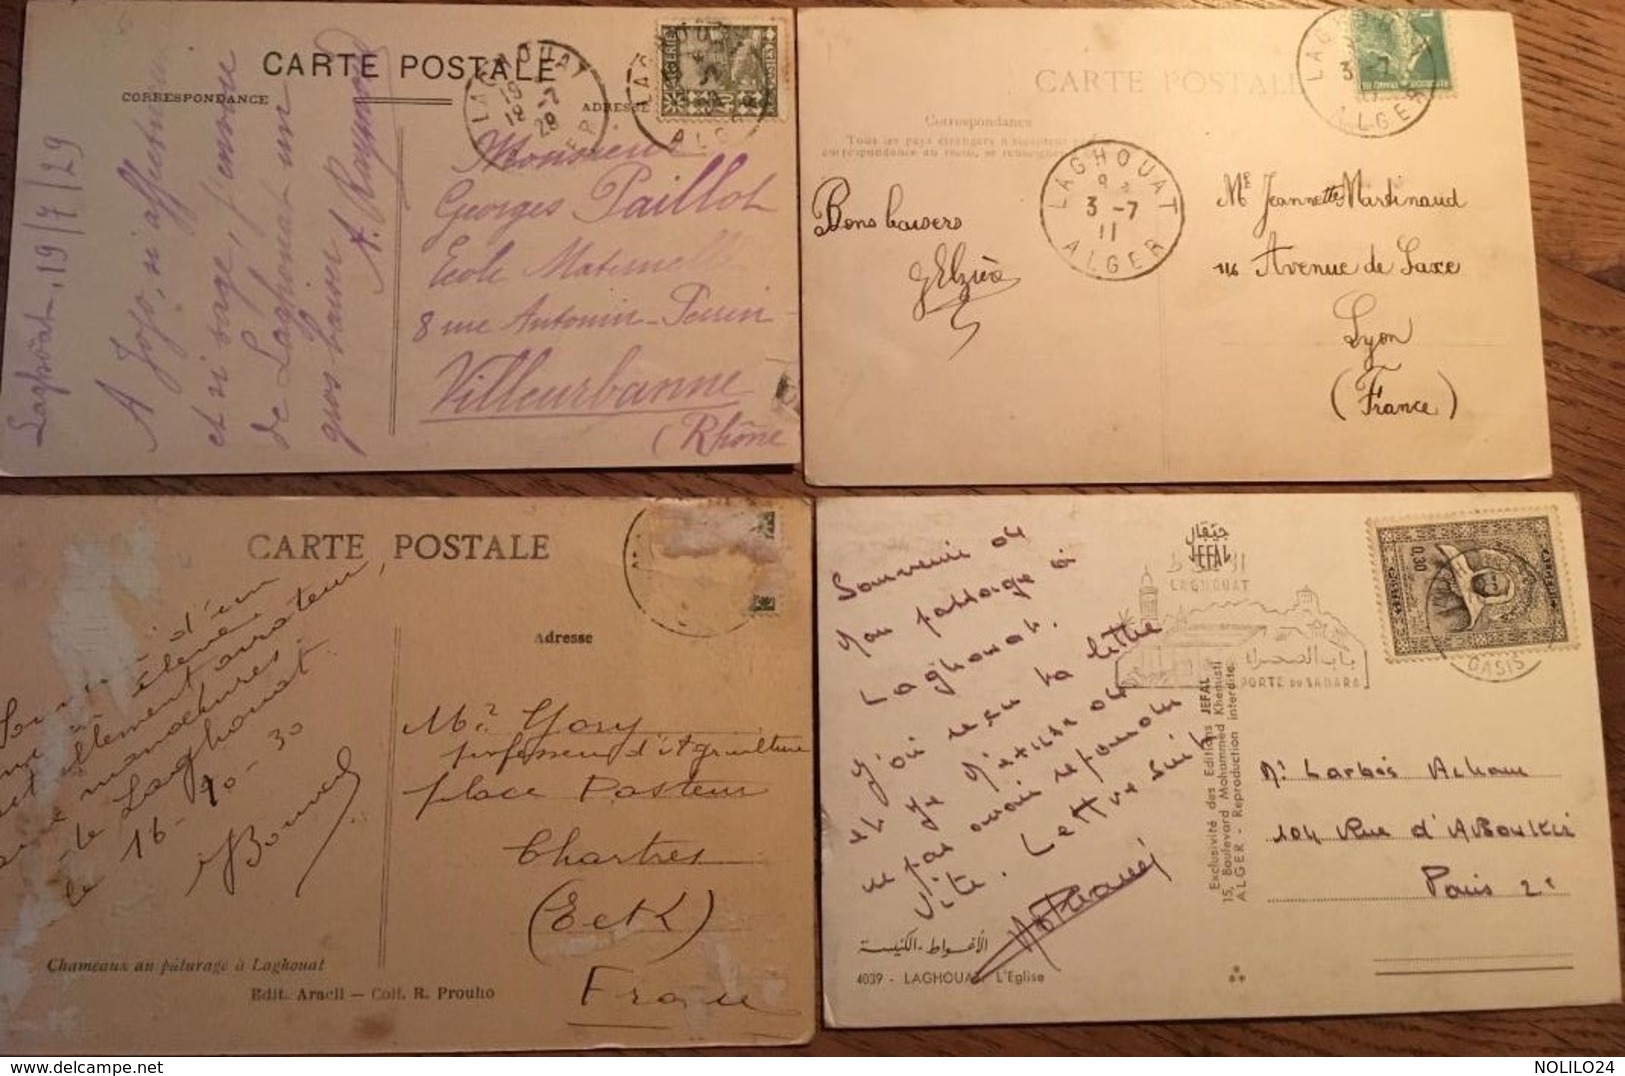 CARTE POSTALE
CORRESPONDANCE
ADRESSE
LAGHOUAT
ALGER
ALGERIE
POSTES
Laghouat, 19/7/29
A Jojo, si affectueux
et si sage, j'envoie
de Laghouat un
gros baiser
A. Raymond
Monsieur
Georges Paillot
Ecole Maternelle
8 rue Antonin-Perrin
Villeurbanne
(Rhône
CARTE POSTALE
Correspondance
Tous les pays étrangers n'acceptent pas
correspondance au recto, se renseigner
LAGHOUAT
3 -7
11
ALGER
Bons baisers
GElzière
Mlle Jeannette Martinaud
116 Avenue de Saxe
Lyon
(France)
CARTE POSTALE
Adresse
d'un
élève
et
Laghouat
le 16-10-30
Mr
professeur d'Agriculture
place Pasteur
Chartres
(E et L)
France
Chameaux au pâturage à Laghouat
Edit. Aracil — Coll. R. Prouho
جيفال
JEFAL
LAGHOUAT
باب الصحراء
PORTE DU SAHARA
0,30
OASIS
Souvenir de
mon passage à
Laghouat.
J'ai reçu ta lettre
et je m'excuse de
ne pas avoir répondu
vite. Lettre suit
Exclusivité des Editions JEFAL
15, Boulevard Mohammed Khemisti
ALGER - Reproduction interdite
Mr Larbi Acham
104 Rue d'Aboukir
Paris 2e
الأغواط - الكنيسة
4039 - LAGHOUAT L'Eglise
NOLILO24